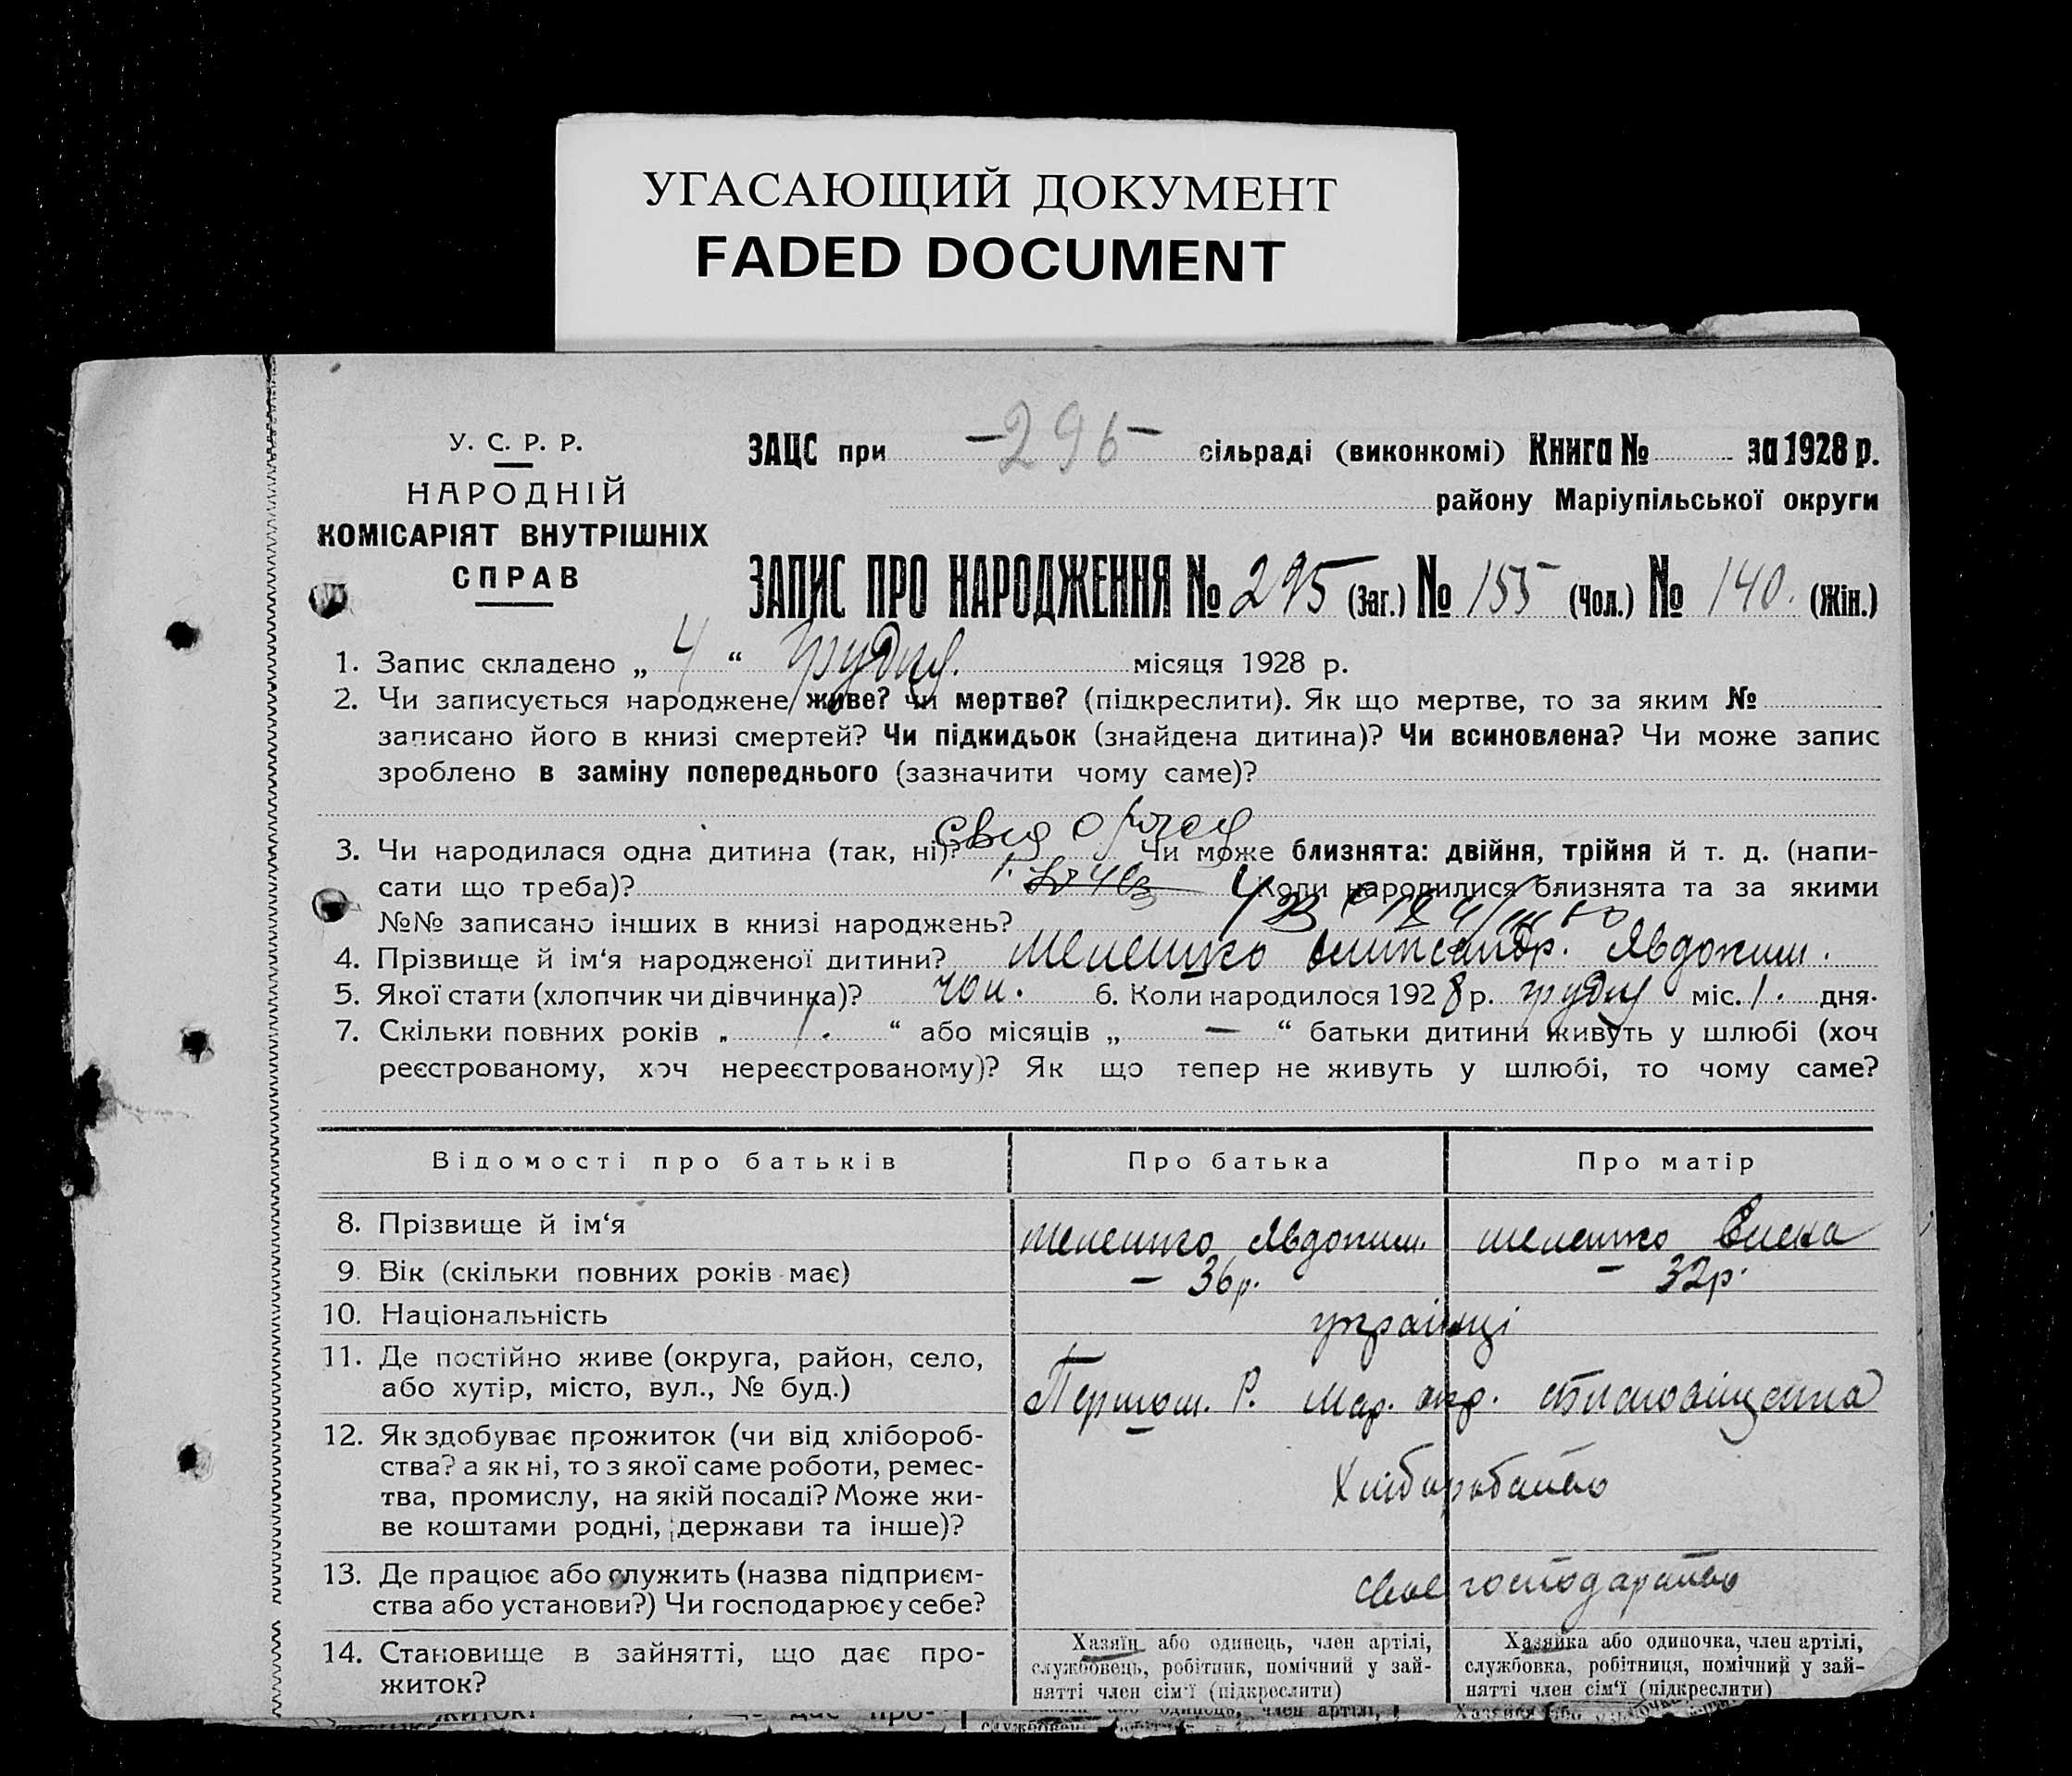 УГАСАЮЩИЙ ДОКУМЕНТ
FADED DOCUMENT
У. С. Р. Р.
НАРОДНІЙ
КОМІСАРІЯТ ВНУТРІШНІХ
СПРАВ
ЗАЦС при -296- сільраді (виконкомі) Книга № за 1928 р.
району Маріупільської округи
ЗАПИС ПРО НАРОДЖЕННЯ № 295 (Заг.) № 155 (Чол.) № 140. (Жін.)
1. Запис складено „ 4 “ грудня. місяця 1928 р.
2. Чи записується народжене живе? чи мертве? (підкреслити). Як що мертве, то за яким №
записано його в книзі смертей? Чи підкидьок (знайдена дитина)? Чи всиновлена? Чи може запис
зроблено в заміну попереднього (зазначити чому саме)?
3. Чи народилася одна дитина (так, ні)? Чи може близнята: двійня, трійня й т. д. (напи-
сати що треба)? Коли народилися близнята та за якими
№№ записано інших в книзі народжень?
4. Прізвище й ім‘я народженої дитини? Шелешко Олександр. Явдоким.
5. Якої стати (хлопчик чи дівчинка)? чол. 6. Коли народилося 1928 р. грудня міс. 1. дня.
7. Скільки повних років „ 1. “ або місяців „ — “ батьки дитини живуть у шлюбі (хоч
реєстрованому, хоч нереєстрованому)? Як що тепер не живуть у шлюбі, то чому саме?
Відомості про батьків Про батька Про матір
8. Прізвище й ім‘я Шелешко Явдоким. Шелешко Олена
9. Вік (скільки повних років має) — 36 р. — 32 р.
10. Національність українці
11. Де постійно живе (округа, район, село,
або хутір, місто, вул., № буд.) Першот. Р. Мар. окр. Благовіщенка
12. Як здобуває прожиток (чи від хлібороб-
ства? а як ні, то з якої саме роботи, ремес-
тва, промислу, на якій посаді? Може жи-
ве коштами родні, держави та інше)? Хліборобство
13. Де працює або служить (назва підприєм-
ства або установи?) Чи господарює у себе? своє господарство
14. Становище в зайнятті, що дає про-
житок?
Хазяїн або одинець, член артілі,
службовець, робітник, помічний у зай-
нятті член сім‘ї (підкреслити)
Хазяйка або одиночка, член артілі,
службовка, робітниця, помічний у зай-
нятті член сім‘ї (підкреслити)